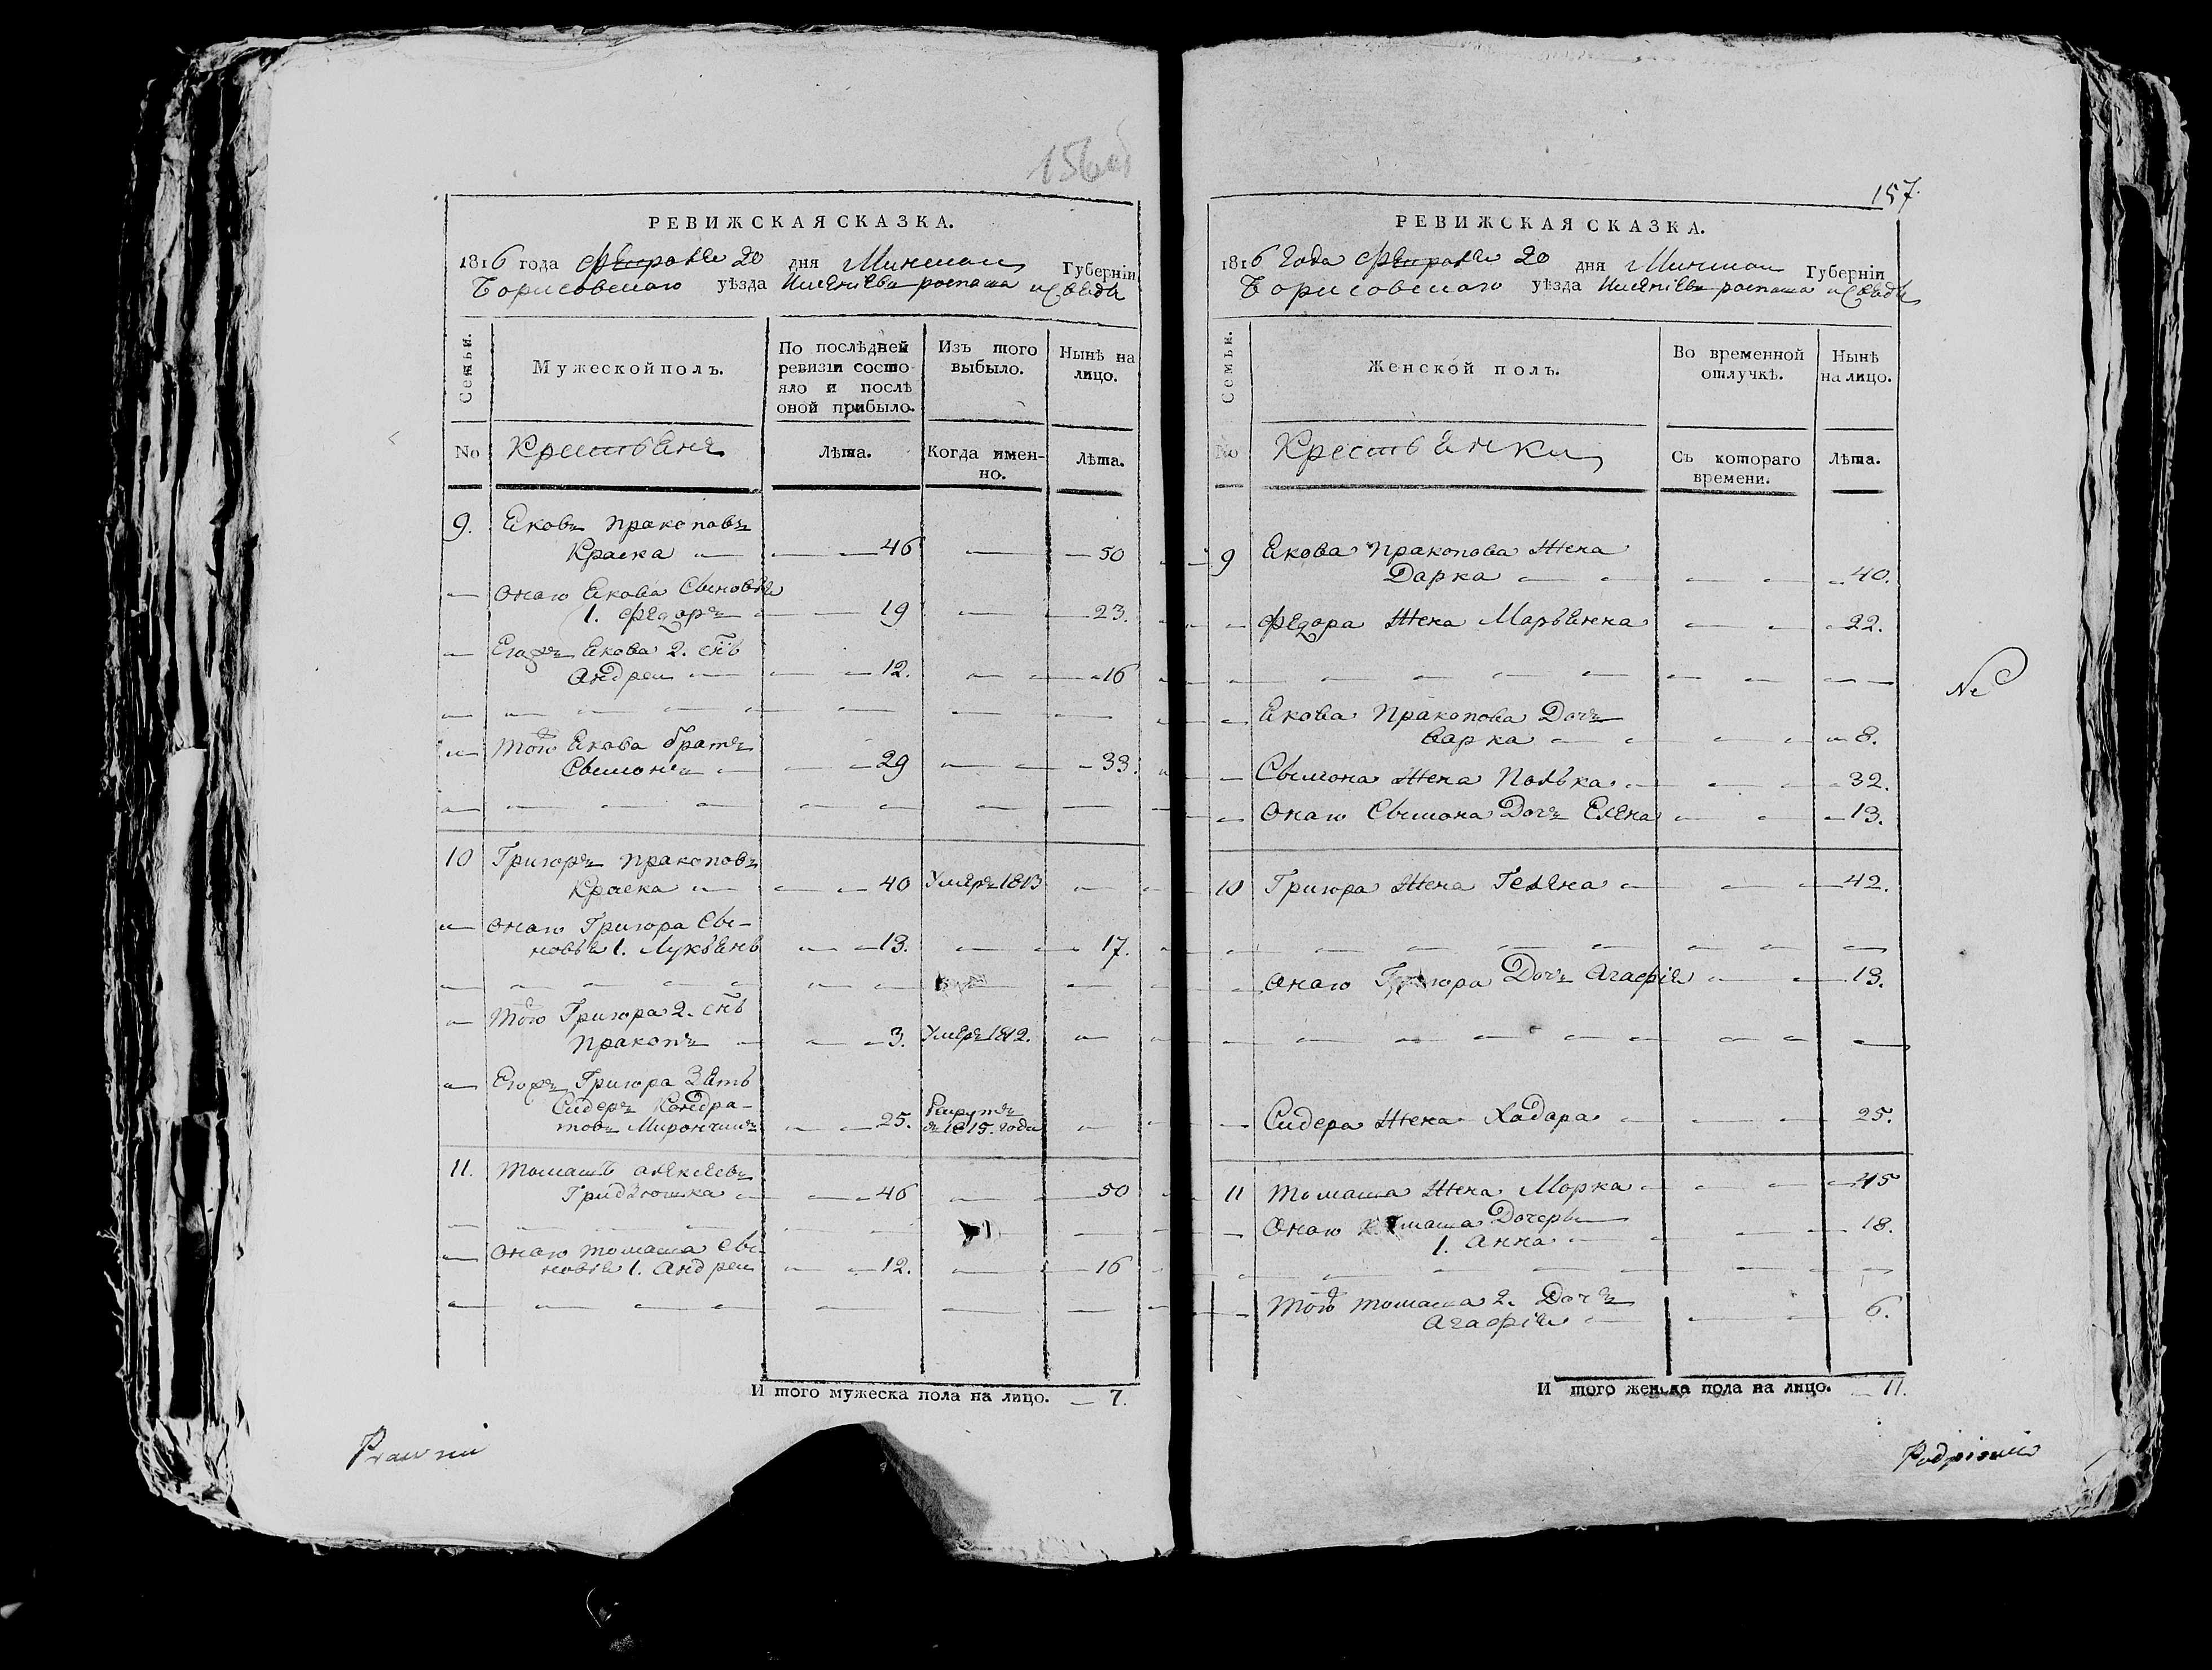 156об
РЕВИЖСКАЯ СКАЗКА.
1816 года февраля 20 дня Минской Губерніи
Борисовскаго уѣзда
Семьи.
Мужеской полъ.
По послѣдней ревизіи состояло и послѣ оной прибыло.
Изъ того выбыло.
Нынѣ на лицо.
No
Крестьяня
Лѣта.
Когда именно.
Лѣта.
9. Яковъ Пракоповъ
Краска 46 50
онаго Якова Сыновья
1. Федоръ 19 23.
Егоръ Якова 2. снъ
Андреи 12. 16
того Якова братъ
Сымонъ 29 33.
10 Григоръ Пракоповъ
Краска 40 Умеръ 1813
онаго Григора Сы-
новья 1. Лукьянъ 13. 17.
того Григора 2. снъ
Пракопъ 3. Умеръ 1812.
Егоръ Григора Зять
Сидеръ Кондра-
товъ 25. Рекрутъ 1815. года
11. Томашъ Алексеевъ
Гридзюшка 46 50
онаго Томаша сы-
новья 1. Андреи 12. 16
И того мужеска пола на лицо. 7.
157.
РЕВИЖСКАЯ СКАЗКА.
1816 года февраля 20 дня Минской Губерніи
Борисовскаго уѣзда
Семьи.
Женской полъ.
Во временной отлучкѣ.
Нынѣ на лицо.
No
Крестьянки
Съ котораго времени.
Лѣта.
9 Якова Пракопова Жена
Дарка 40.
Федора Жена Марьянна 22.
Якова Пракопова Дочъ
Варка 8.
Сымона Жена Полька 32.
онаго Сымона Дочъ Елена 13.
10 Григора Жена Гелена 42.
онаго Григора Дочъ Агафія 13.
Сидера Жена Хадора 25.
11 Томаша Жена Морка 45
онаго Томаша Дочеры
1. Анна 18.
того Томаша 2. Дочъ
Агафія 6.
И того женска пола на лицо. 11.